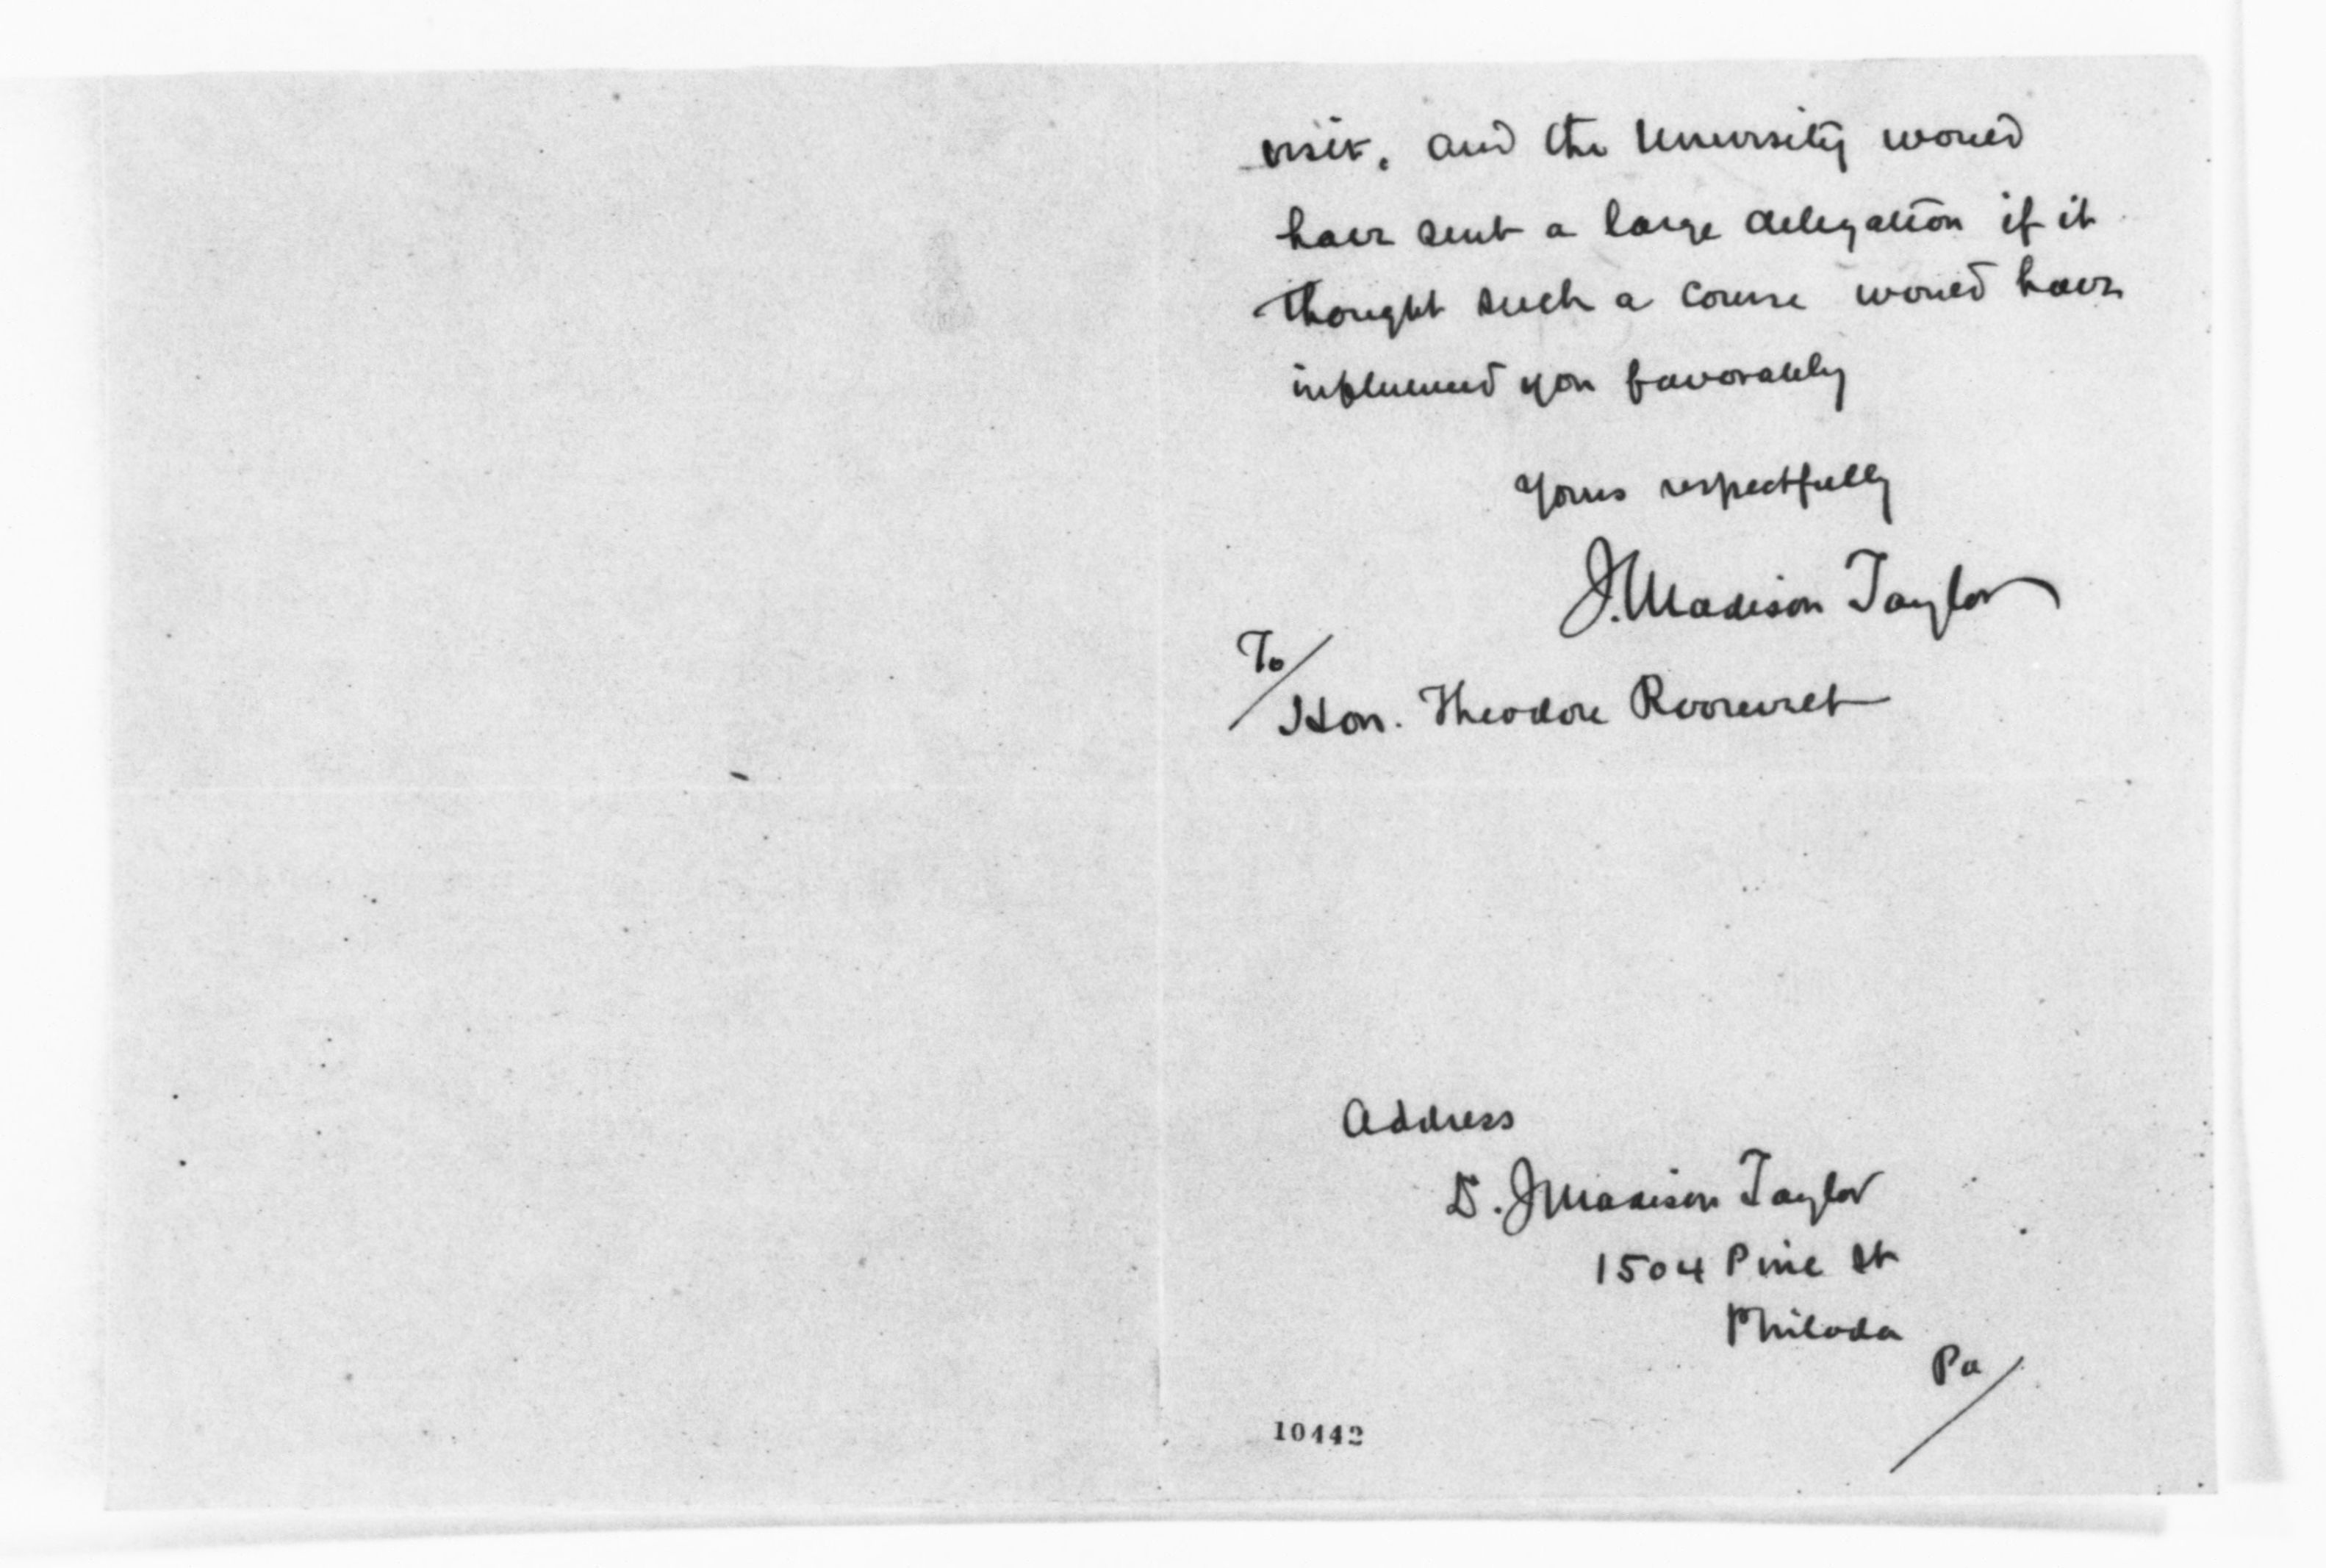 visit, and the University would
have sent a large delegation if it
thought such a course would have
influenced you favorably
Yours respectfully
J. Madison Taylor
To/
Hon. Theodore Roosevelt
Address
Dr. J Madison Taylor
1504 Pine St
Philada
Pa/
10442